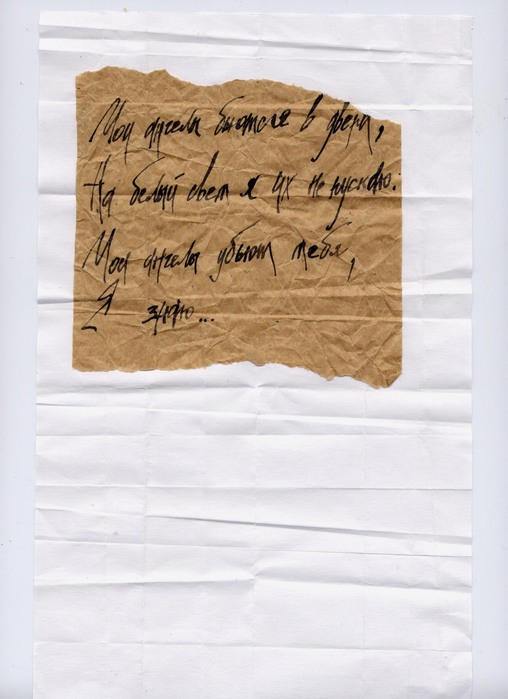 Мои ангелы бьются в двери,
На белый свет я их не пускаю.
Мои ангелы убьют тебя,
Я знаю...